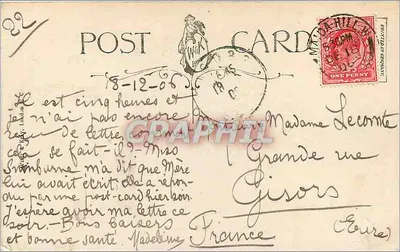 22
POST CARD
W&K
MAIDA-HILL. W.
ONE PENNY
18-12-06
Il est cinq heures et
je n'ai pas encore
reçu de lettre,
ça se fait-il? Miss
Swinburne m'a dit que Mère
lui avait écrit, elle a répon-
du par une post-card hier soir.
J'espère avoir ma lettre ce
soir. Bons baisers
et bonne santé. Madeleine
Madame Lecomte
1 Grande rue
Gisors
(Eure)
France
CARPHIL